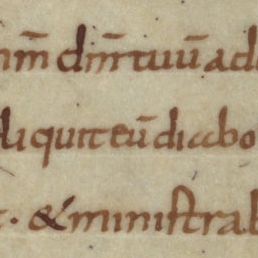 dn̄m tuū ad
liquit eū diabo
& ministrab